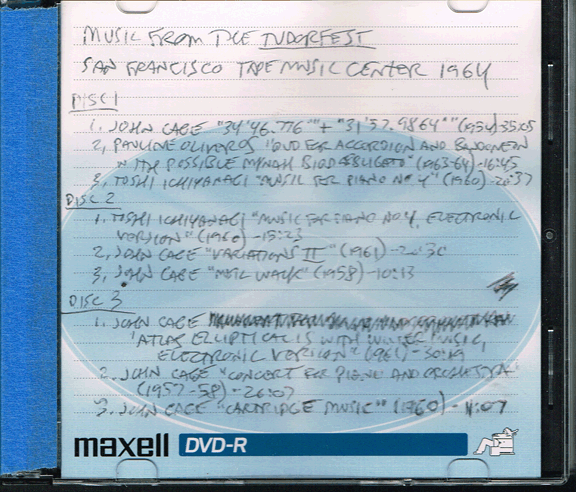 MUSIC FROM THE TUDORFEST
SAN FRANCISCO TAPE MUSIC CENTER 1964
DISC 1
1. JOHN CAGE "34'46.776"" + "31'57.9864"" (1954) 35:05
2, PAULINE OLIVEROS "DUO FOR ACCORDION AND BANDONEON
WITH POSSIBLE MYNAH BIRD OBBLIGATO" (1963-64) - 16:45
3, TOSHI ICHIYANAGI "MUSIC FOR PIANO NO 4" (1960) - 20:37
DISC 2
1. TOSHI ICHIYANAGI "MUSIC FOR PIANO NO.4, ELECTRONIC
VERSION" (1960) - 15:23
2, JOHN CAGE "VARIATIONS II" (1961) - 20:30
3, JOHN CAGE "MUSIC WALK" (1958) - 10:13
DISC 3
1. JOHN CAGE
"ATLAS ELLIPTICALIS WITH WINTER MUSIC,
ELECTRONIC VERSION" (1961) - 30:19
2. JOHN CAGE "CONCERT FOR PIANO AND ORCHESTRA"
(1957-58) - 26:07
3. JOHN CAGE "CARTRIDGE MUSIC" (1960) - 11:07
maxell DVD-R